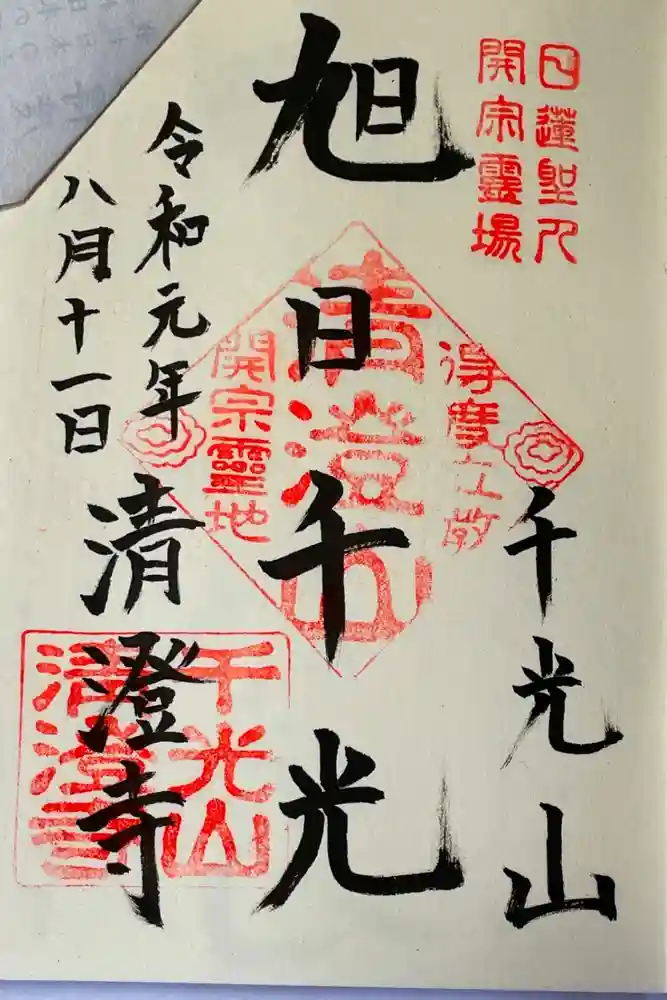 日蓮聖人
開宗靈場
千光山
旭日千光
清澄山
得度立教
開宗靈地
令和元年
八月十一日
清澄寺
千光山
清澄寺